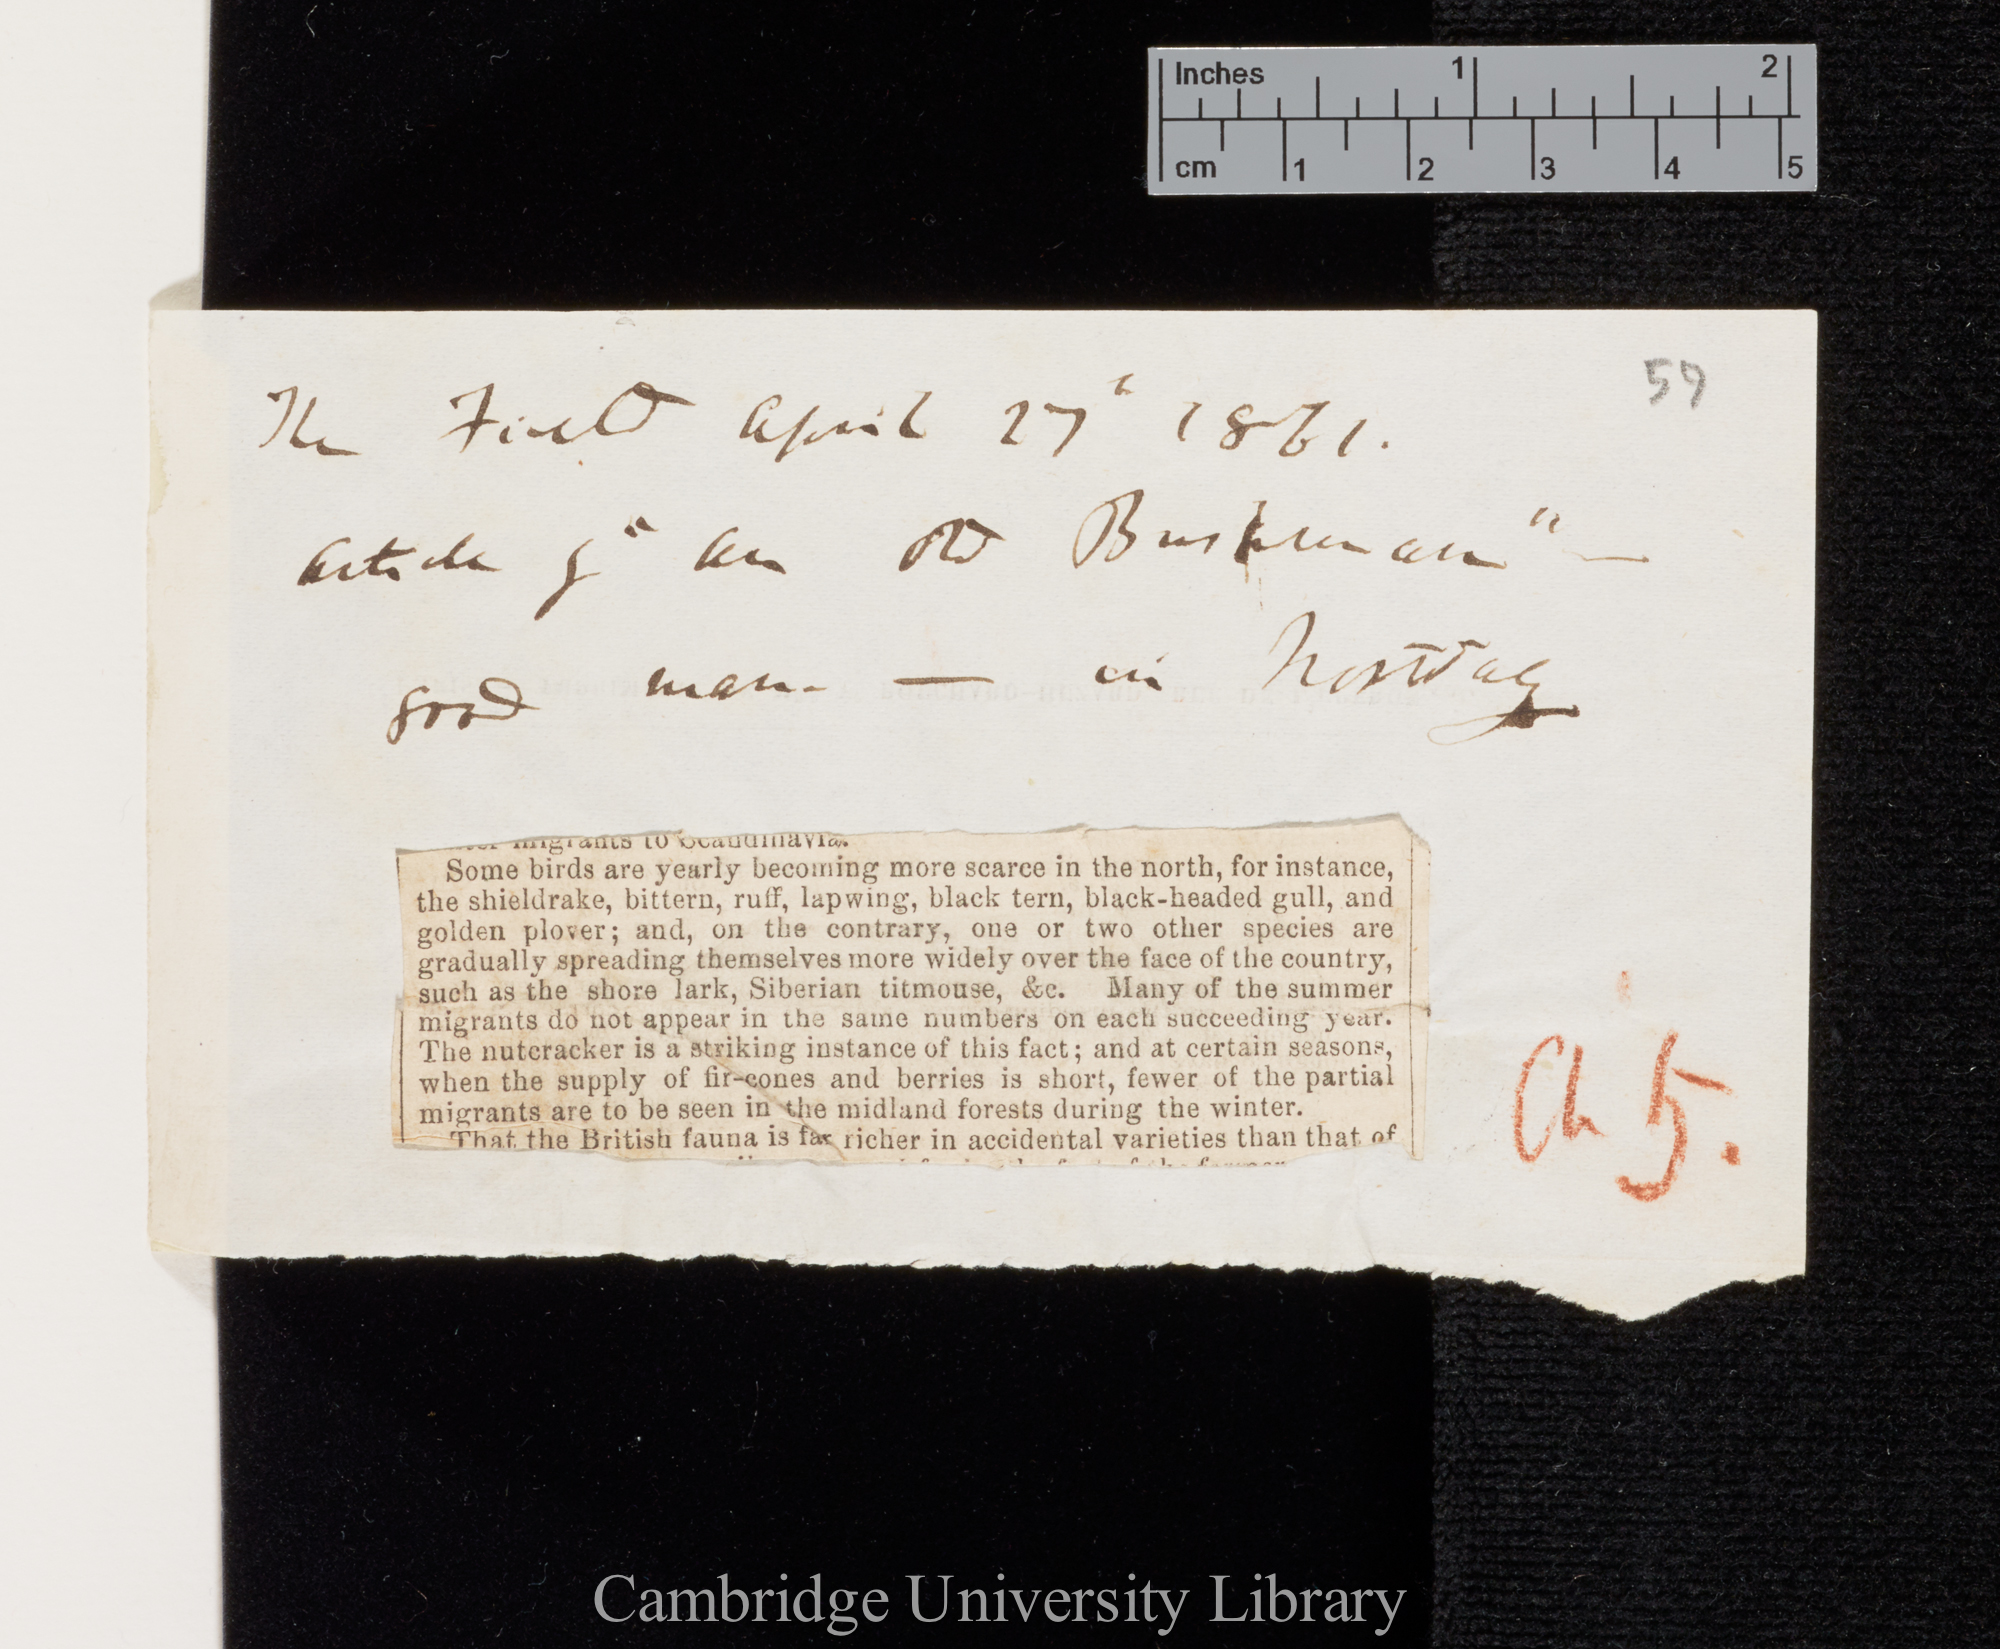 Inches 1 2
cm 1 2 3 4 5
59
The Field April 27th 1861.
Article by "An Old Bushman" —
good man — in Norway
migrants to Scandinavia.
Some birds are yearly becoming more scarce in the north, for instance,
the shieldrake, bittern, ruff, lapwing, black tern, black-headed gull, and
golden plover; and, on the contrary, one or two other species are
gradually spreading themselves more widely over the face of the country,
such as the shore lark, Siberian titmouse, &c. Many of the summer
migrants do not appear in the same numbers on each succeeding year.
The nutcracker is a striking instance of this fact; and at certain seasons,
when the supply of fir-cones and berries is short, fewer of the partial
migrants are to be seen in the midland forests during the winter.
That the British fauna is far richer in accidental varieties than that of
Ch 5.
Cambridge University Library